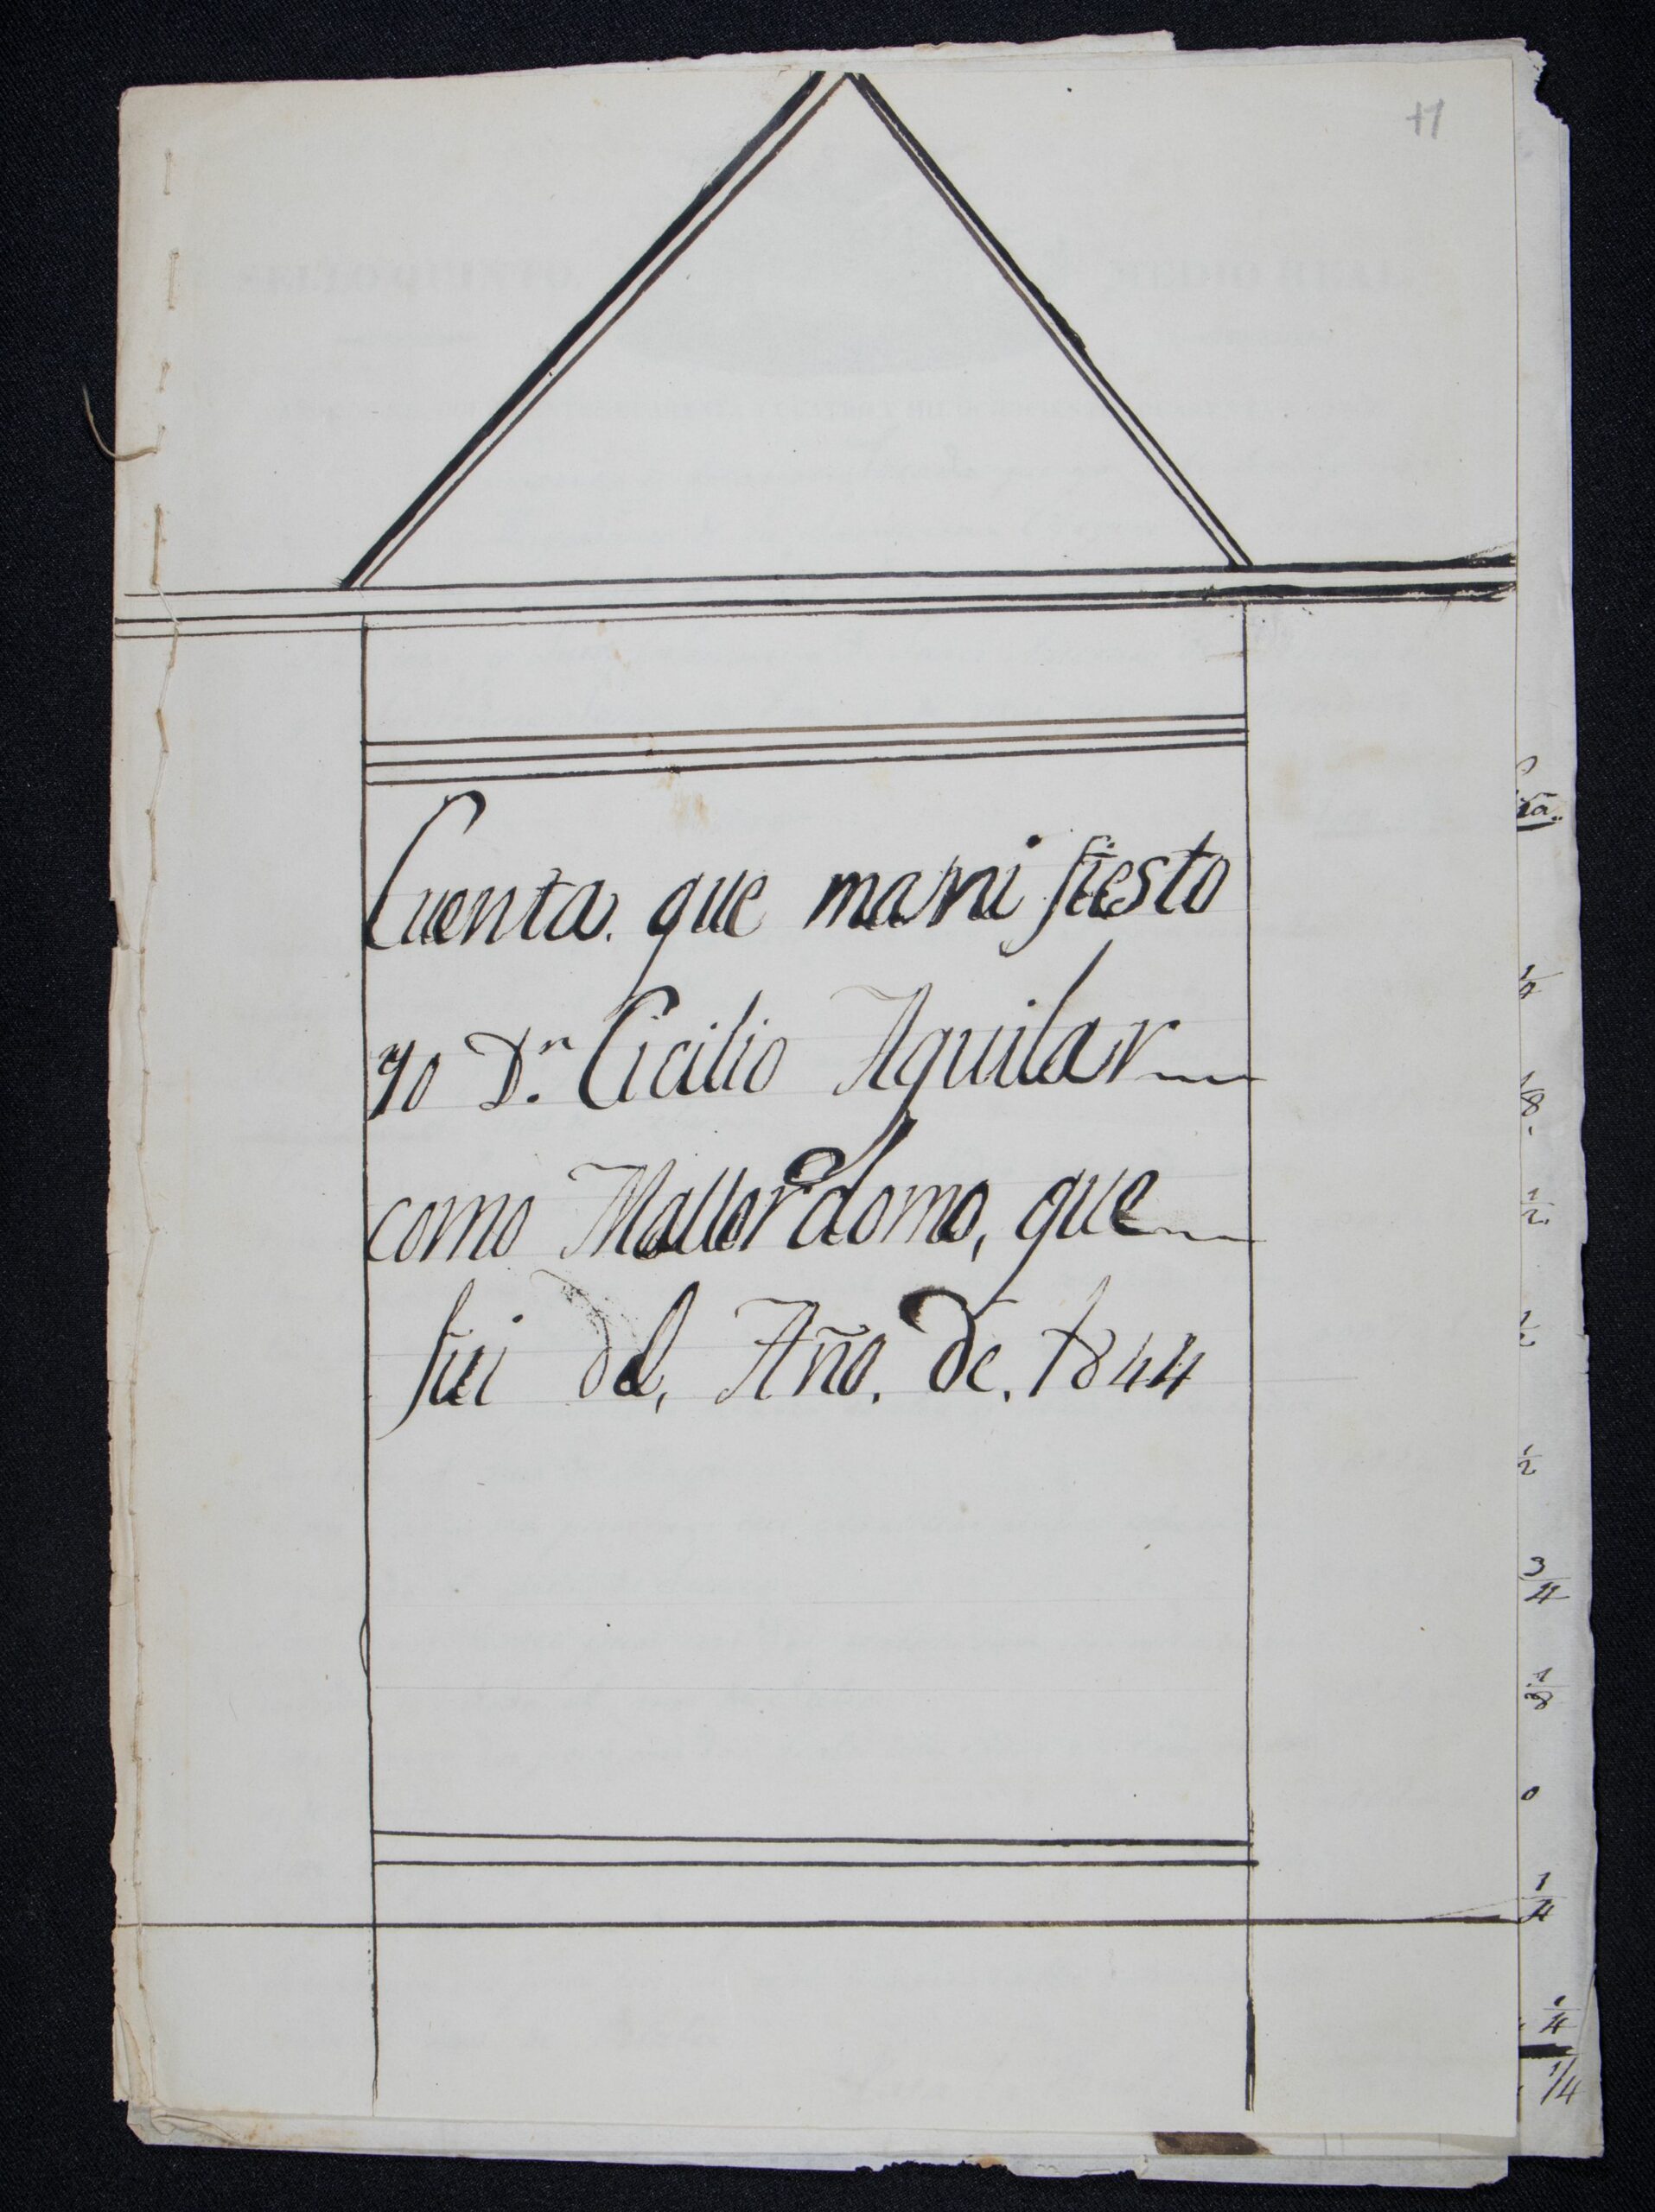 11
Cuenta. que manifiesto
yo Dn. Cicilio Aguilar
como Mallordomo, que
fui del, Año. de. 1844
ra..
1/4
1/8
1/2
1/2
1/2
3/4
1/8
0
1/4
1/4
1/4